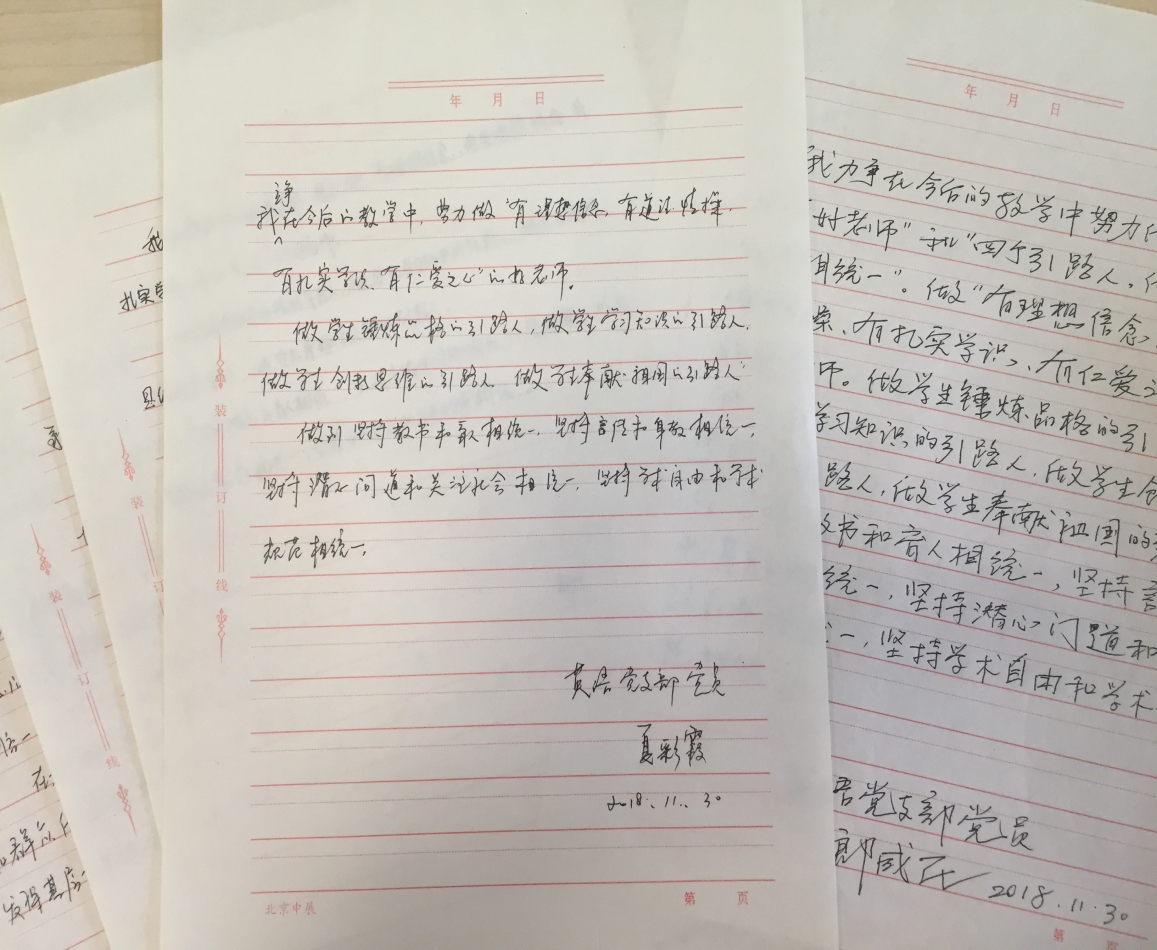 年 月 日
诤
我在今后的教学中，努力做“有理想信念，有道德情操，
有扎实学识，有仁爱之心”的好老师。
做学生锤炼品格的引路人，做学生学习知识的引路人，
做学生创新思维的引路人，做学生奉献祖国的引路人
做到坚持教书和育人相统一，坚持言传和身教相统一，
坚持潜心问道和关注社会相统一，坚持学术自由和学术
规范相统一。
英语党支部 党员
夏彩霞
2018.11.30
北京中展
第 页
装
订
线
年 月 日
我力争在今后的教学中努力
好老师”和“四个引路人，
相统一”。做“有理想信念、
有扎实学识、有仁爱
师。做学生锤炼品格的引
学习知识的引路人，做学生
路人，做学生奉献祖国的
书和育人相统一，坚持言
统一，坚持潜心门道和
一，坚持学术自由和学术
语党支部党员
2018.11.30
第 页
我
扎实
装
订
装
订
线
在